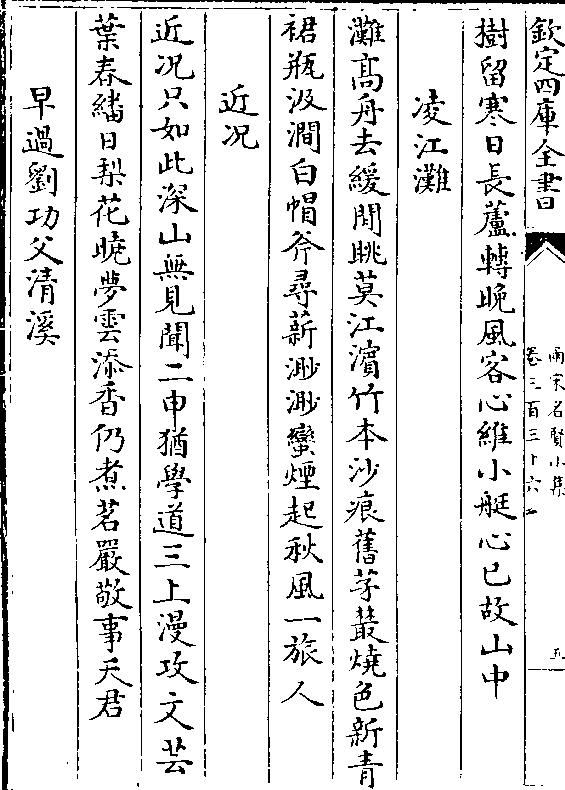 欽定四庫全書
兩宋名賢小集
卷三百三十六
五
樹留寒日長蘆轉晚風客心維小艇心已故山中
凌江灘
灘髙舟去緩閒眺莫江濵竹本沙痕舊茅叢燒色新青
裙瓶汲澗白帽斧尋薪渺渺蠻煙起秋風一旅人
近况
近况只如此深山無見聞二申猶學道三上漫攻文芸
葉春繙日梨花曉夢雲添香仍煮茗嚴敬事天君
早過劉功父清溪